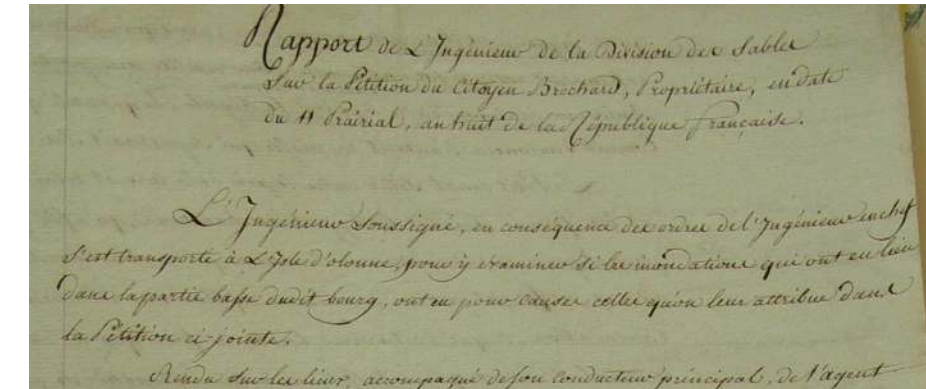 Rapport de L'Ingénieur de la Division des Sables
Sur la Pétition du Citoyen Brochard, Propriétaire, en date
du 11 Prairial, an huit de la République française.
L'Ingénieur Soussigné, en conséquence des ordres de l'Ingénieur en chef
s'est transporté à L'Isle d'olonne, pour y examiner si les inondations qui ont eu lieu
dans la partie basse dudit bourg, ont eu pour causes celles qu'on leur attribue dans
la Pétition ci-jointe.
Rendu sur les lieux, accompagné de son conducteur principal, de l'agent